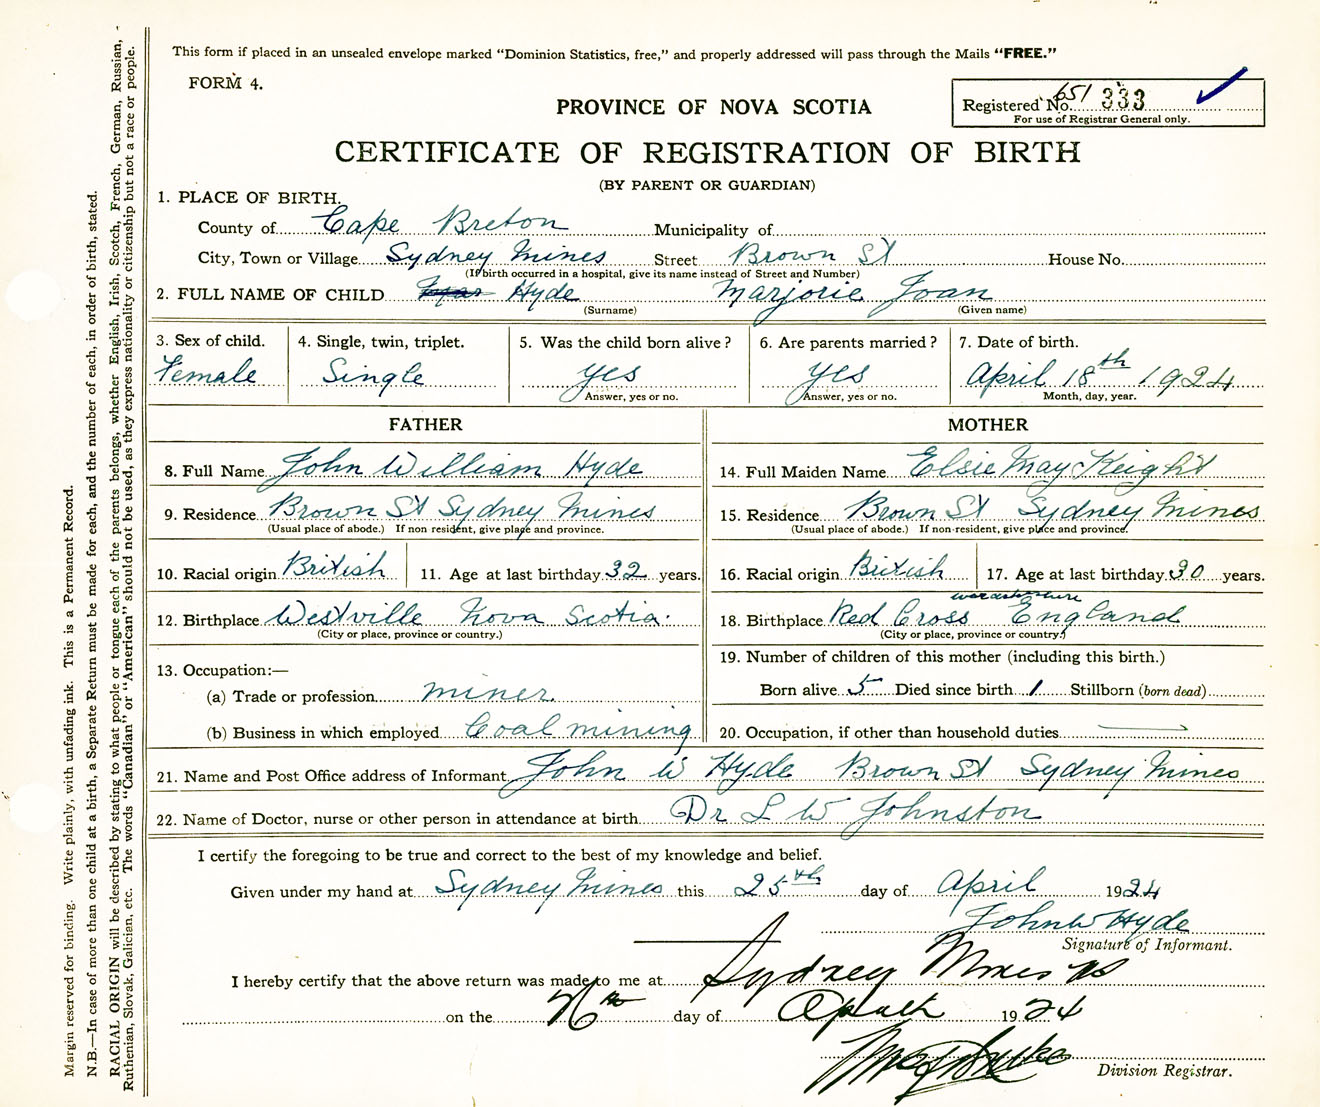 This form if placed in an unsealed envelope marked "Dominion Statistics, free," and properly addressed will pass through the Mails "FREE."
FORM 4.
PROVINCE OF NOVA SCOTIA
Registered No. 651 333
For use of Registrar General only.
CERTIFICATE OF REGISTRATION OF BIRTH
(BY PARENT OR GUARDIAN)
1. PLACE OF BIRTH.
County of Cape Breton Municipality of
City, Town or Village Sydney Mines Street Brown St House No.
(If birth occurred in a hospital, give its name instead of Street and Number)
2. FULL NAME OF CHILD Hyde Marjorie Joan
(Surname) (Given name)
3. Sex of child. 4. Single, twin, triplet. 5. Was the child born alive? 6. Are parents married? 7. Date of birth.
Female Single yes yes April 18th 1924
Answer, yes or no. Answer, yes or no. Month, day, year.
FATHER MOTHER
8. Full Name John William Hyde 14. Full Maiden Name Elsie May Keight
9. Residence Brown St Sydney Mines 15. Residence Brown St Sydney Mines
(Usual place of abode.) If non resident, give place and province. (Usual place of abode.) If non-resident, give place and province.
10. Racial origin British 11. Age at last birthday 32 years. 16. Racial origin British 17. Age at last birthday 30 years.
12. Birthplace Westville Nova Scotia. 18. Birthplace Red Cross England
(City or place, province or country.) (City or place, province or country.)
13. Occupation:— 19. Number of children of this mother (including this birth.)
(a) Trade or profession miner Born alive 5 Died since birth 1 Stillborn (born dead)
(b) Business in which employed Coal mining 20. Occupation, if other than household duties
21. Name and Post Office address of Informant John W Hyde Brown St Sydney Mines
22. Name of Doctor, nurse or other person in attendance at birth Dr L W Johnston
I certify the foregoing to be true and correct to the best of my knowledge and belief.
Given under my hand at Sydney Mines this 25th day of April 1924
John W Hyde
Signature of Informant.
I hereby certify that the above return was made to me at Sydney Mines NS
on the day of 1924
Division Registrar.
Margin reserved for binding. Write plainly, with unfading ink. This is a Permanent Record.
N.B.—In case of more than one child at a birth, a Separate Return must be made for each, and the number of each, in order of birth, stated.
RACIAL ORIGIN will be described by stating to what people or tongue each of the parents belongs, whether English, Irish, Scotch, French, German, Russian,
Ruthenian, Slovak, Galician, etc. The words "Canadian" or "American" should not be used, as they express nationality or citizenship but not a race or people.